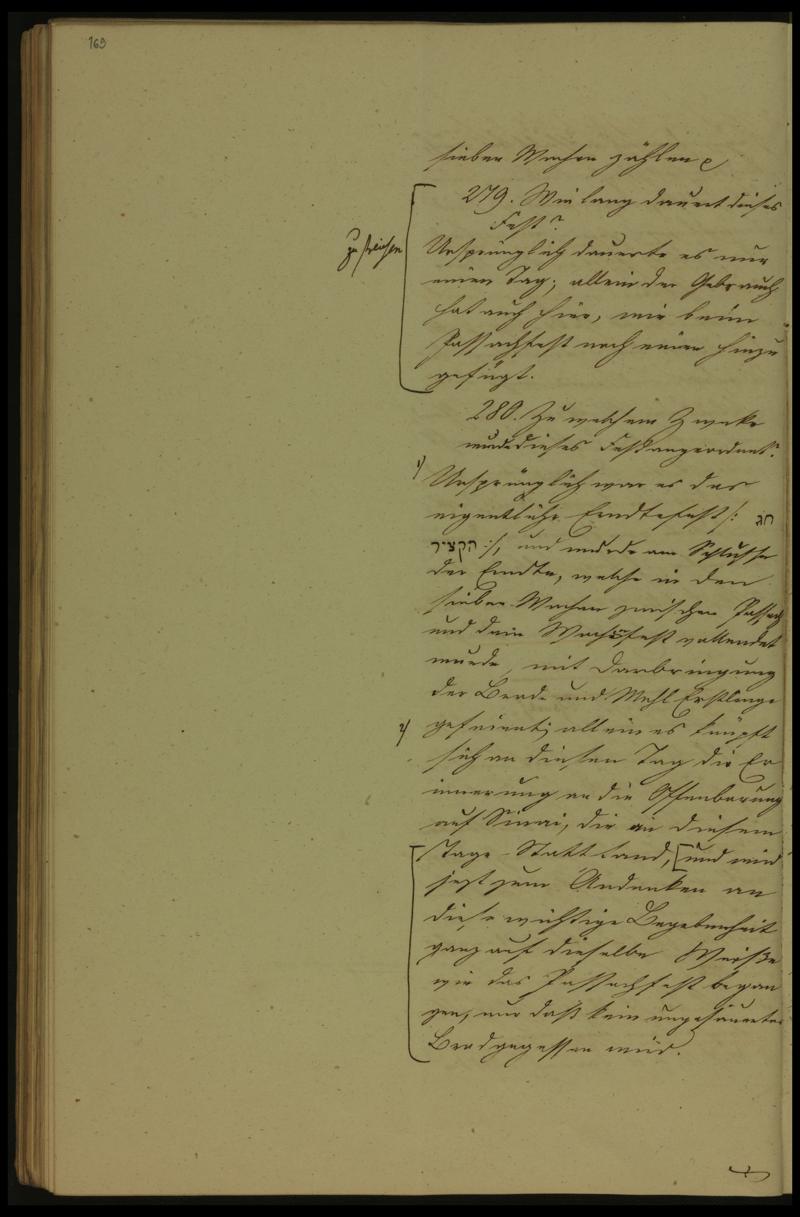 169
sieben Wochen zählen
279. Wie lang dauert dieses
Fest?
zu streichen
Ursprünglich dauerte es nur
einen Tag; allein der Gebrauch
hat auch hier, wie beim
Passachfest noch einen hinzu
gefügt.
280. Zu welchem Zweke
wurde dieses Fest angeordnet?
1)
Ursprünglich war es das
eigentliche Erndtefest /: חג
הקציר :/, und wurde am Schlusse
der Erndte, welche in den
sieben Wochen zwischen Passach
und dem Wochefest vollendet
wurde, mit Darbringung
der Brod- und Mehl Erstlinge
2)
gefeiert; allein es knüpft
sich an diesen Tag die Er
innerung an die Offenbarung
auf Sinai, die an diesem
Tage Statt fand, [und wird
jezt zum Andenken an
diese wichtige Begebenheit
ganz auf dieselbe Weiße
wie das Passachfest began
gen, nur daß kein ungesäuertes
Brod gegessen wird.